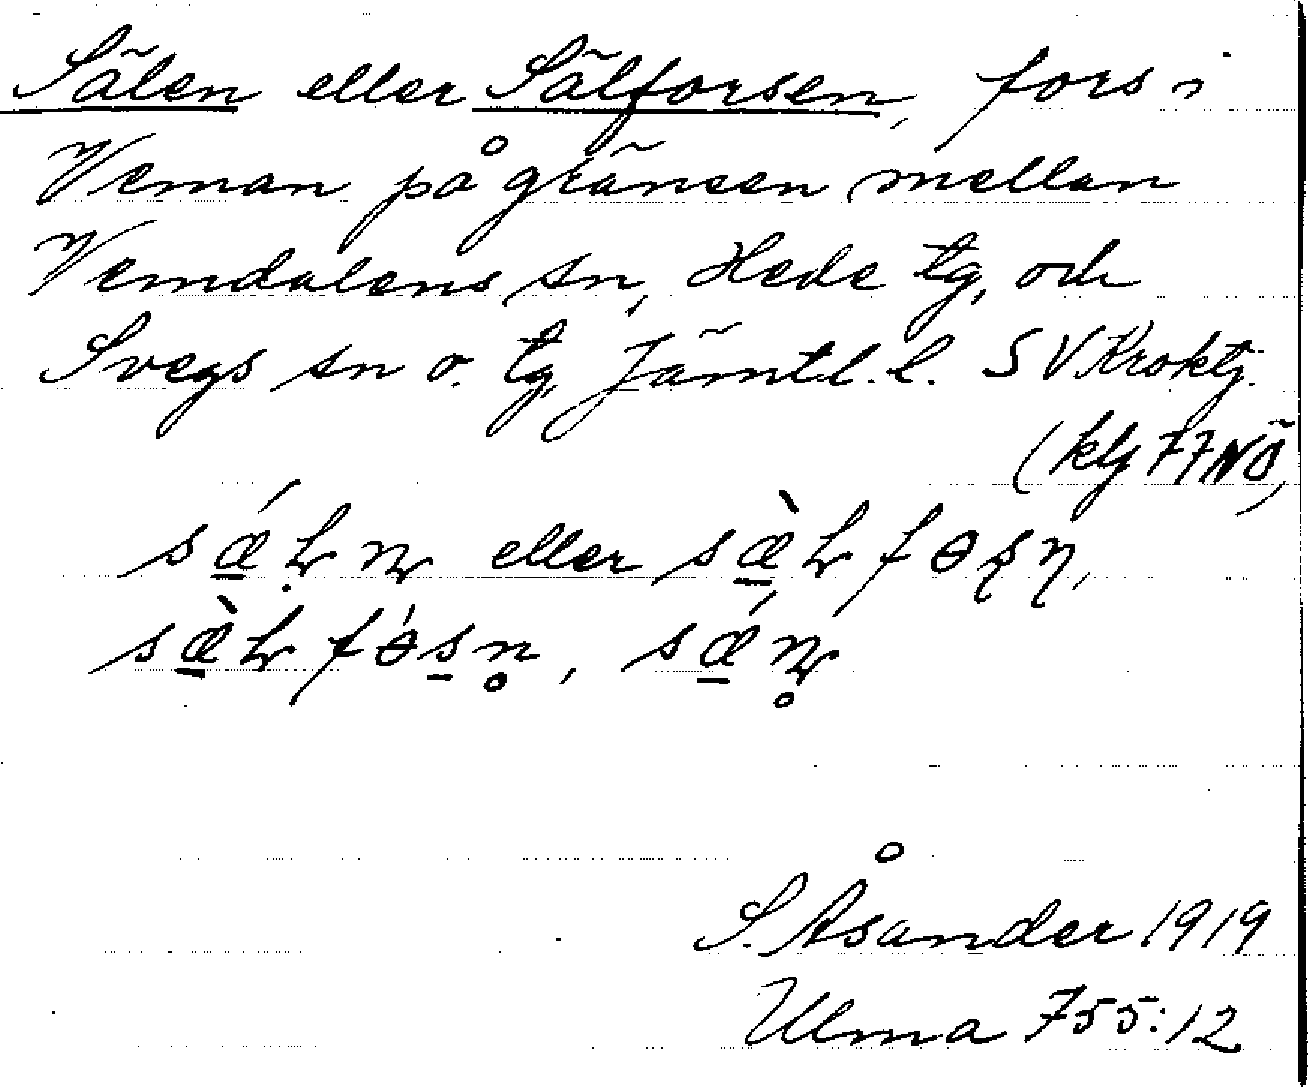 Sälen eller Sälforsen, fors i
Veman på gränsen mellan
Vemdalens sn, Hede tg, och
Svegs sn o. tg Jämtl. l. SV Kroktj.
(kbj 77NÖ)
eller
S. Åsander 1919
Ulma 755:12